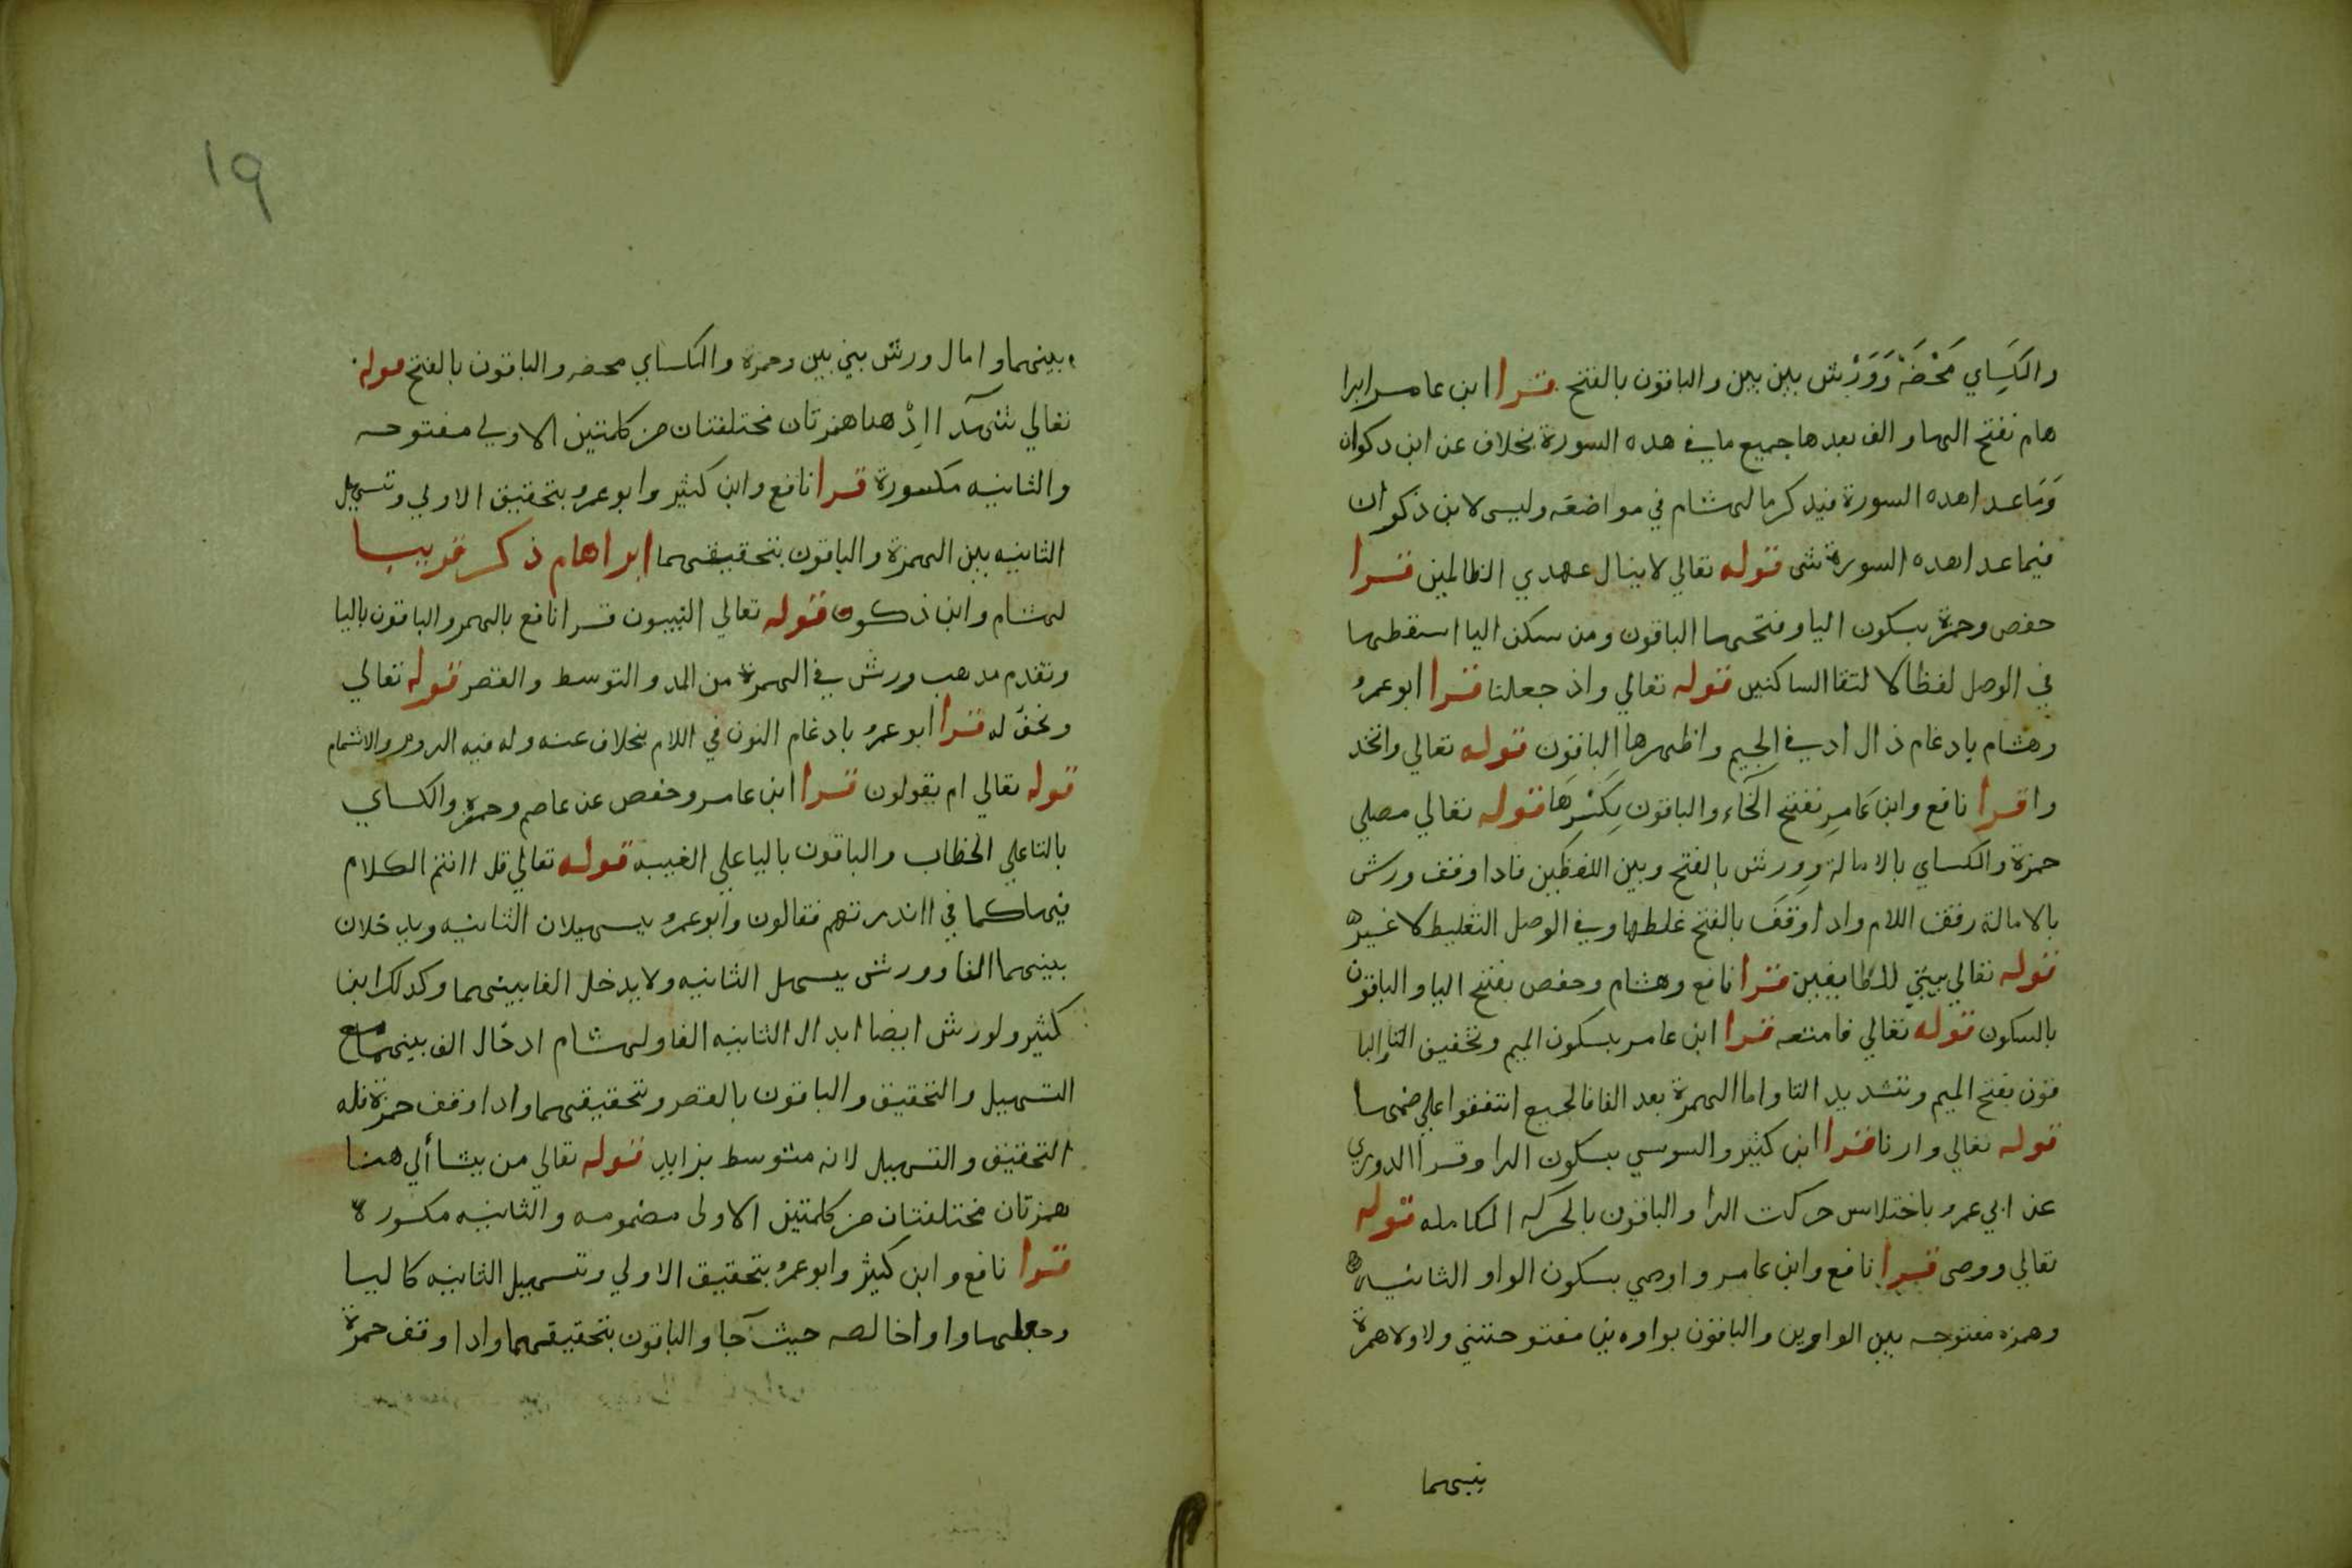 والكَسَاي مَحْضَةً وَوَرْش بين بين والباقون بالفتح قرا ابن عامر ابرا
هام بفتح الها والف بعدها جميع ما في هده السورة بخلاف عن ابن دكوان
وَمَاعدا هده السورة فيدكر ما لهشام في مواضعه وليس لابن ذكوان
فيما عدا هده السورة شى قوله تعالي لا ينال عهدي الظالمين قرا
حفص وحمزة بسكون اليا وفتحها الباقون ومن سكن اليا اسقطها
في الوصل لفظا لالتقا الساكنين قوله تعالي واذ جعلنا قرا ابو عمرو
وهشام بادغام ذال اد في الجيم واظهرها الباقون قوله تعالي واتخد
وا قرا نافع وابن عَامِر بفتح الخَاء والباقون بِكَسْرِهَا قوله تعالي مصلي
حمزة والكساي بالامالة وورش بالفتح وبين اللفظين فادا وقف ورش
بالامالة رقق اللام وادا وقفَ بالفتح غلطها وفي الوصل التغليط لا غيره
قوله تعالي بيتيَ للطايفين قرا نافع وهشام وحفص بفتح اليا والباقون
بالسكون قوله تعالي فامتعه قرا ابن عامر بسكون الميم وتخفيف التا والبا
قون بفتح الميم وتشديد التا واما الهمزة بعد الفا فالجميع اتفقوا علي ضمها
قوله تعالي وارنا قرا ابن كثير والسوسي بسكون الرا وقرا الدوري
عن ابي عمرو باختلاس حركت الرا والباقون بالحركه الكامله قوله
تعالي ووصى قرا نافع وابن عامر واوصي بسكون الواو الثانيه
وهمزه مفتوحه بين الواوين والباقون بواوين مفتوحتين ولا همزة
بينهما
بينهما وامال ورش بين بين وحمزة والكساي محضه والباقون بالفتح قوله
تعالي شهدآ اِذْ هنا همزتان مختلفتان من كلمتين الاولي مفتوحه
والثانيه مكسورة قرا نافع وابن كثير وابو عمرو بتحقيق الاولي وتسهيل
الثانيه بين الهمزة والباقون بتحقيقهما ابراهام ذكر قريبا
لهشام وابن ذكوان قوله تعالي النبيون قرا نافع بالهمز والباقون باليا
وتقدم مدهب ورش في الهمزة من المد والتوسط والقصر قوله تعالي
ونحن له قرا ابو عمرو بادغام النون في اللام بخلاف عنه وله فيه الروم والاشمام
قوله تعالي ام يقولون قرا ابن عامر وحفص عن عاصم وحمزة والكساي
بالتا علي الخطاب والباقون باليا علي الغيبه قوله تعالي قل اانتم الكلام
فيها كما في ااندرتهم فقالون وابو عمرو يسهلان الثانيه ويدخلان
بينهما الفا وورش يسهل الثانيه ولا يدخل الفا بينهما وكدلك ابن
كثير ولورش ايضا ابدال الثانيه الفا ولهشام ادخال الف بينهما مع
التسهيل والتحقيق والباقون بالقصر وتحقيقهما وادا وقف حمزة فله
التحقيق والتسهيل لانه متوسط بزايد قوله تعالي من يشا ألي هنا
همزتان مختلفتان من كلمتين الاولى مضمومه والثانيه مكسورة
قرا نافع وابن كثير وابو عمرو بتحقيق الاولي وتسهيل الثانيه كاليا
وجعلها واوا خالصه حيث جآ والباقون بتحقيقهما وادا وقف حمزة
١٩